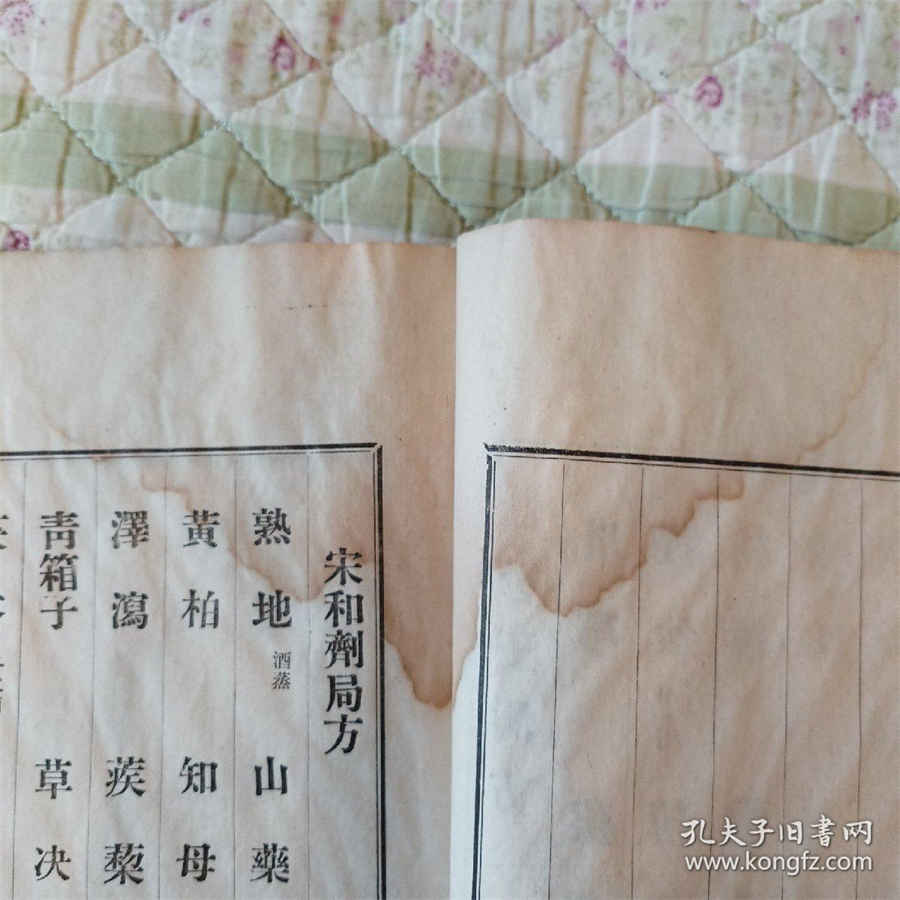 宋和劑局方
熟地酒蒸 山藥
黃柏 知母
澤瀉 蒺藜
青箱子 草决
孔夫子旧書网
www.kongfz.com